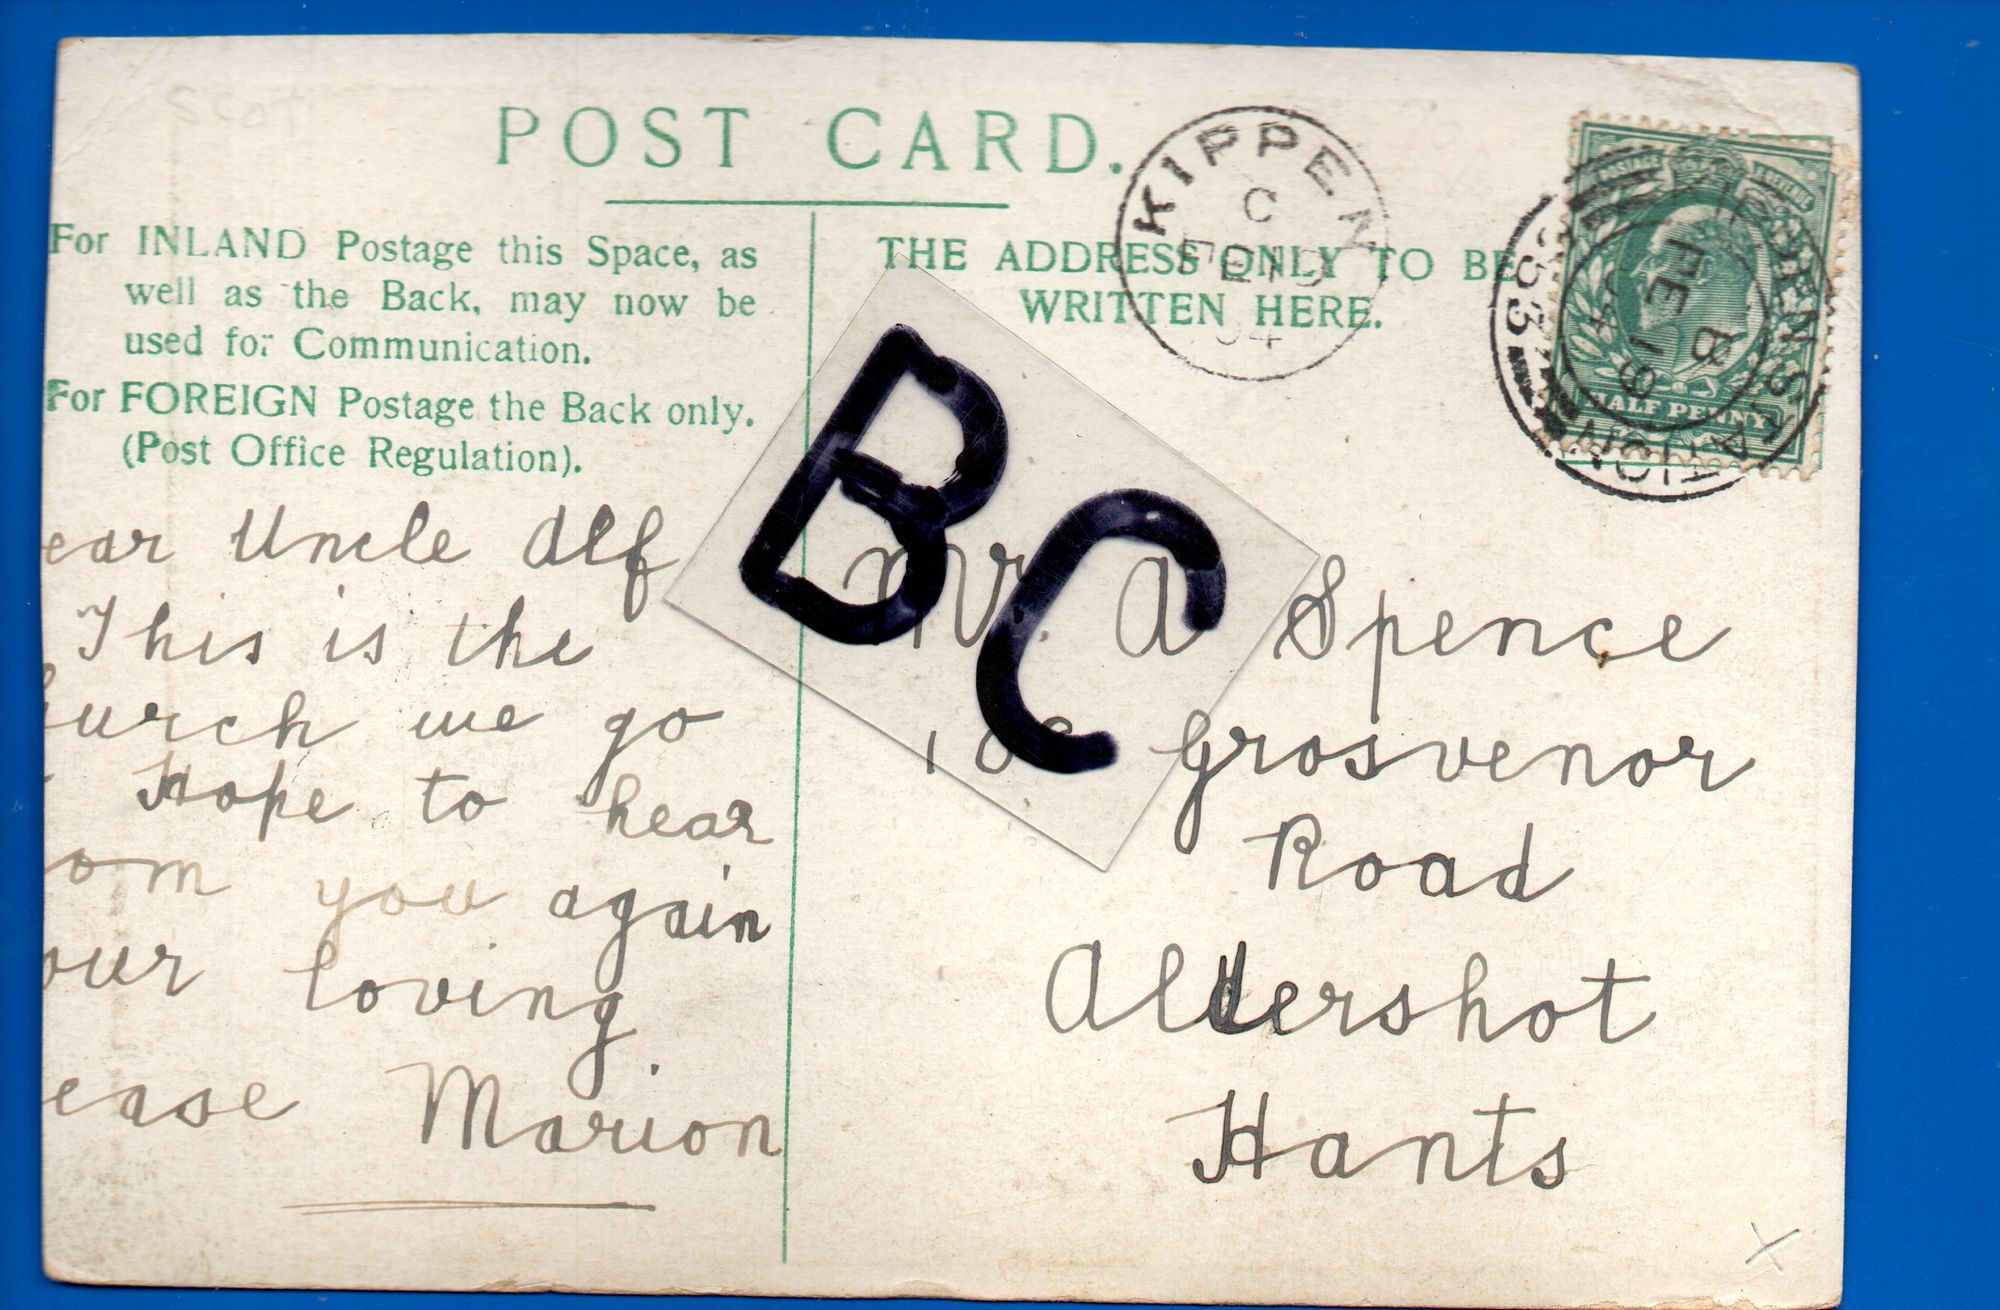 scot
POST CARD.
For INLAND Postage this Space, as
well as the Back, may now be
used for Communication.
For FOREIGN Postage the Back only.
(Post Office Regulation).
THE ADDRESS ONLY TO BE
WRITTEN HERE.
KIPPEN
C
FE 19
04
POSTAGE REVENUE
HALF PENNY
KIPPEN STATION
FEB 19
04
BC
ear Uncle Alf
This is the
urch we go
Hope to hear
om you again
our loving
ease Marion
Mr. A Spence
Grosvenor
Road
Aldershot
Hants
X